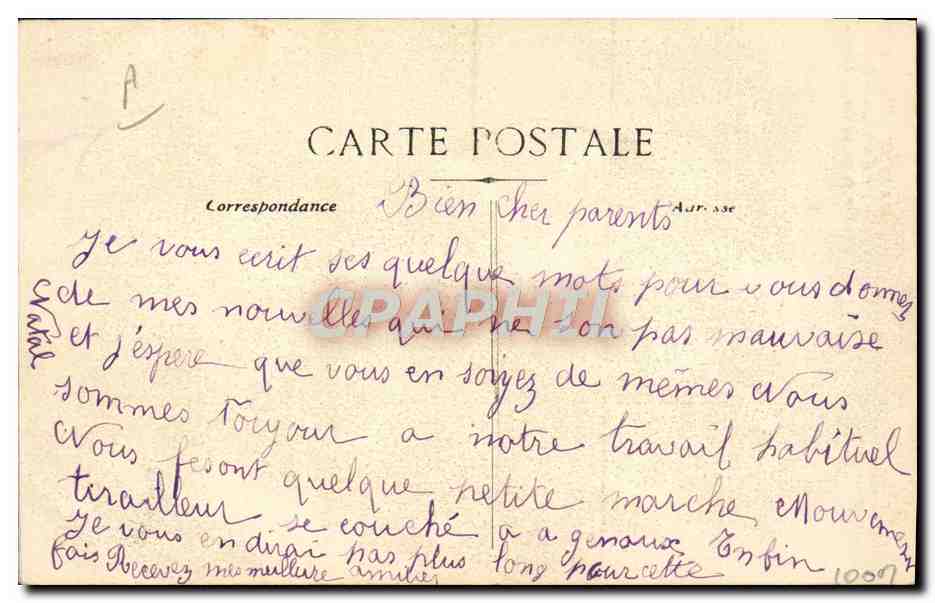 A
CARTE POSTALE
Correspondance
Adresse
Bien cher parents
Je vous ecrit ses quelque mots pour vous donner
de mes nouvelles qui ne son pas mauvaise
et j'éspere que vous en soiyez de mêmes Nous
sommes Toujour a notre travail habituel
Nous fesont quelque petite marche Mouvement
tirailleur se couché a a genoux Enfin
Je vous en dirai pas plus long pour cette
fois Recevez mes meilleure amities
Natal
CPAPHTI
1007